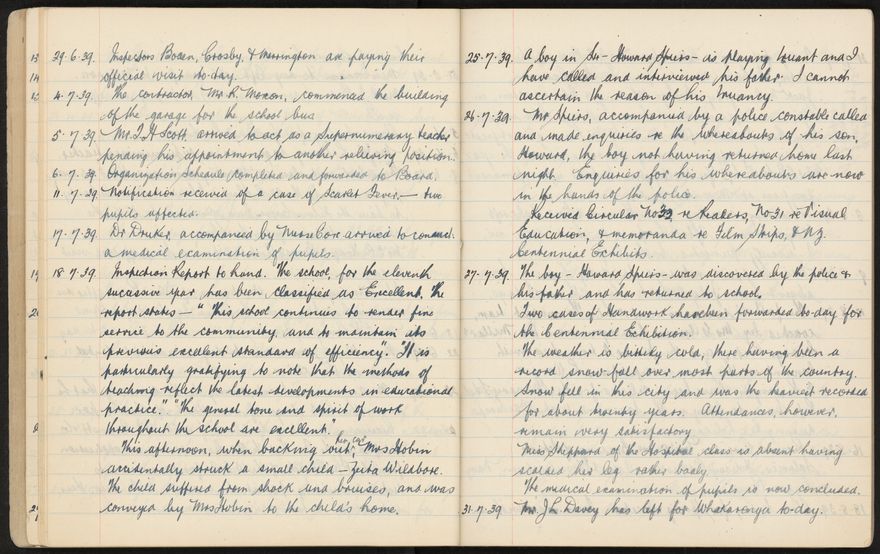 29.6.39. Inspectors Boden, Crosby, & Merrington are paying their
official visit to-day.
4.7.39. The contractor, Mr. R. Moxon, commenced the building
of the garage for the school bus
5.7.39. Mr. Scott arrived to act as a supernumerary teacher
pending his appointment to another relieving position.
6.7.39. Organization schedule completed and forwarded to Board.
11.7.39 Notification received of a case of Scarlet Fever, — two
pupils affected.
17.7.39 Dr Druker, accompanied by Nurse Core arrived to conduct
a medical examination of pupils.
18.7.39. Inspection Report to hand. The school, for the eleventh
sucussive year has been classified as Excellent. The
report states — "This school continues to render fine
service to the community and to maintain its
previous excellent standard of efficiency". "It is
particularly gratifying to note that the methods of
teaching reflect the latest developments in educational
practice." "The general tone and spirit of work
throughout the school are excellent."
This afternoon, when backing out her car, Mrs Hobin
accidentally struck a small child — Wildbore.
The child suffered from shock and bruises, and was
conveyed by Mrs Hobin to the child's home.
25.7.39. A boy in S4 — Howard Speirs — is playing truant and I
have called and interviewed his father. I cannot
ascertain the reason of his truancy.
26.7.39. Mr Speirs, accompanied by a police constable called
and made enquiries re the whereabouts of his son,
Howard, the boy not having returned home last
night. Enquiries for his whereabouts are now
in the hands of the police.
Received Circular No 33 re Readers, No 31 re Visual
Education, & memoranda re Film Strips, & N.Z.
Centennial Exhibits.
27.7.39 The boy — Howard Speirs — was discovered by the police &
his father and has returned to school.
Two cases of Handwork have been forwarded to-day for
the Centennial Exhibition.
The weather is bitterly cold, there having been a
record snow-fall over most parts of the country.
Snow fell in this city and was the heaviest recorded
for about twenty years. Attendances, however,
remain very satisfactory
Miss Sheppard of the Hospital class is absent having
scalded her leg rather badly.
The medical examination of pupils is now concluded.
31.7.39. Mr. J L Davey has left for Whakarongo to-day.